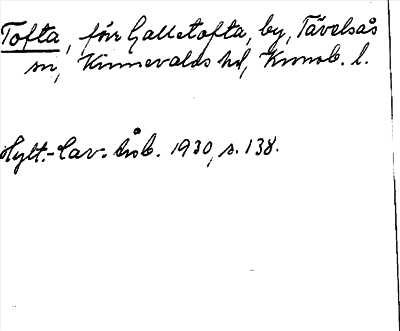 Tofta, före Galletofta, by, Tävelsås
sn, Kinnevalds hd, Kronob. l.
Hylt.-Cav. Årsb. 1930, s. 138.